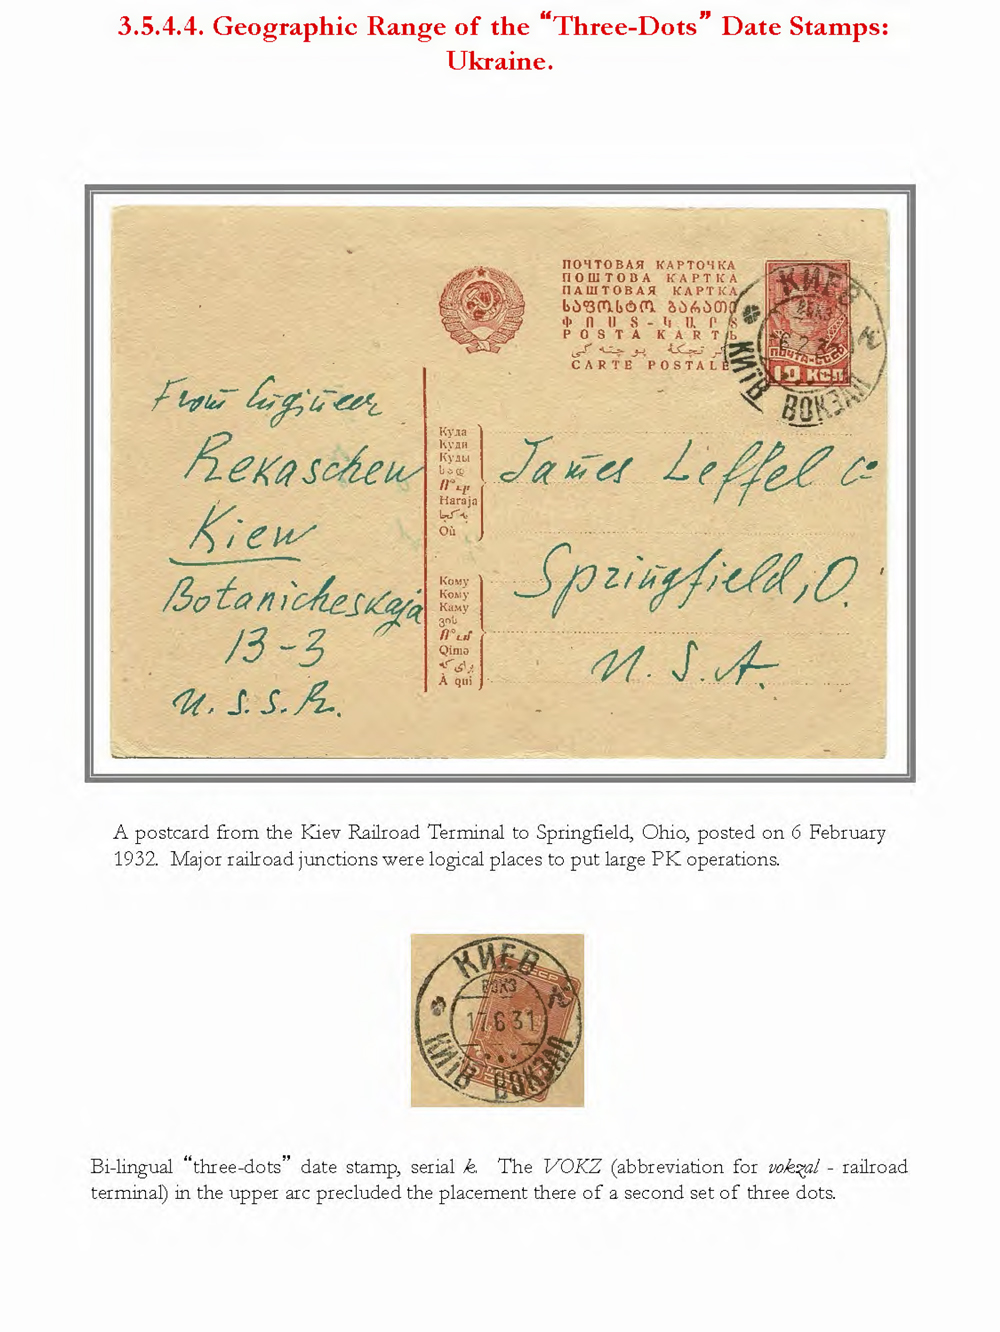 3.5.4.4. Geographic Range of the “Three-Dots” Date Stamps:
Ukraine.
ПОЧТОВАЯ КАРТОЧКА
ПОШТОВА КАРТКА
ПАШТОВАЯ КАРТКА
ՓՈՍՏ-ՔԱՐՏ
POSTA KARTЬ
CARTE POSTALE
КИЕВ
ВОКЗ
6.2.32
КИЇВ ВОКЗАЛ
k
ПОЧТА-СССР
10 КОП
From Engineer
Rekaschew
Kiew
Botanicheskaja
13-3
U.S.S.R.
Куда
Куди
Куды
Haraja
Où
James Leffel Co
Springfield, O.
U.S.A.
Кому
Кому
Каму
Qimə
À qui
A postcard from the Kiev Railroad Terminal to Springfield, Ohio, posted on 6 February
1932. Major railroad junctions were logical places to put large PK operations.
КИЕВ
ВОКЗ
k
17.6.31
КИЇВ ВОКЗАЛ
Bi-lingual “three-dots” date stamp, serial k. The VOKZ (abbreviation for vokzal - railroad
terminal) in the upper arc precluded the placement there of a second set of three dots.